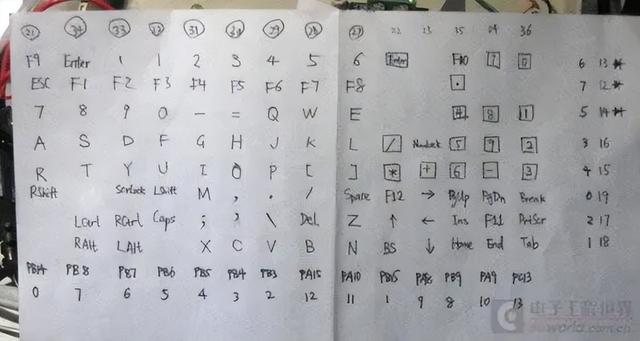 21 34 33 32 31 30 29 28 27 22 23 35 24 36
F9 Enter 1 1 2 3 4 5 6 Enter F10 7 0 6 13 *
ESC F1 F2 F3 F4 F5 F6 F7 F8 . 7 12 *
7 8 9 0 - = Q W E 4 8 1 5 14 *
A S D F G H J K L / Numlock 5 9 2 3 16
R T Y U I O P [ ] * + 6 - 3 4 15
RShift Scrlock LShift M , . / Space F12 → PgUp PgDn Break 0 19
LCtrl RCtrl Caps ; ' \ Del Z ↑ ← Ins F11 PrtScr 2 17
RAlt LAlt X C V B N BS ↓ Home End Tab 1 18
PB14 PB8 PB7 PB6 PB5 PB4 PB3 PA15 PA10 PB15 PA8 PB9 PA9 PC13
0 7 6 5 4 3 2 12 11 1 9 8 10 13
电子工程世界
eeworld.com.cn